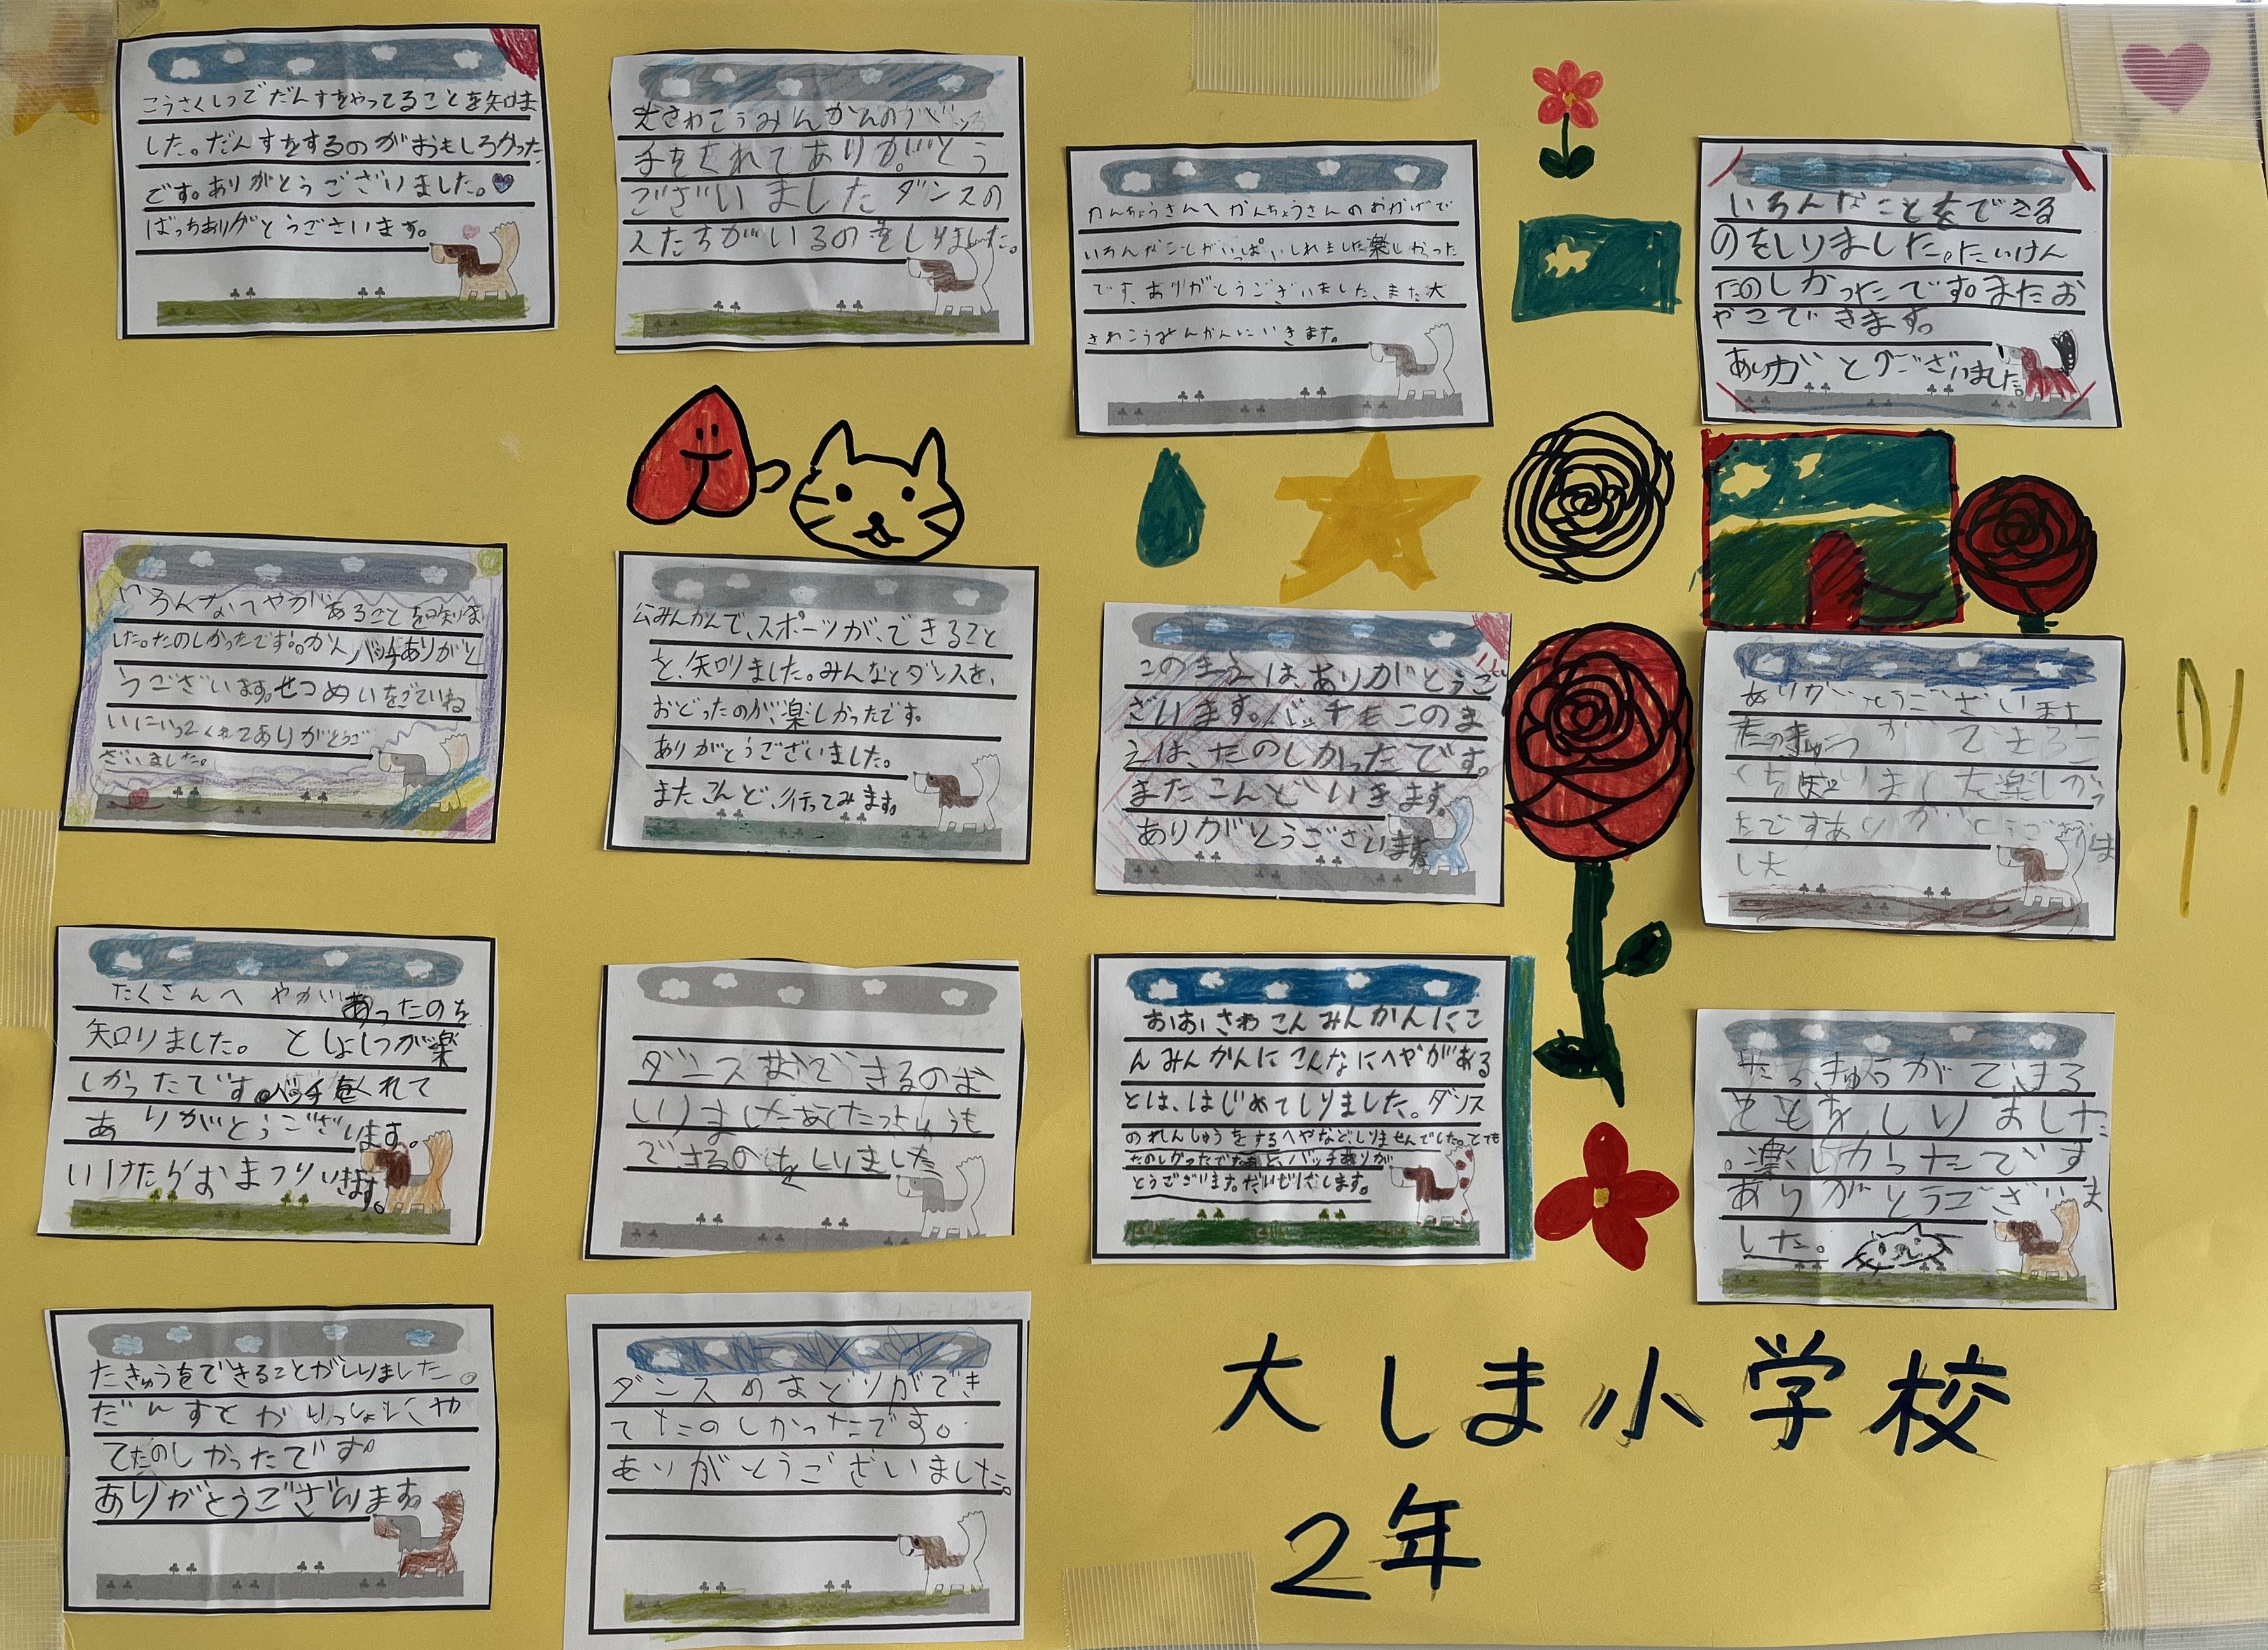 こうさくしつでだんすをやってることを知りま
した。だんすをするのがおもしろかった
です。ありがとうございました。
ばっちありがとうございます。
大さわこうみんかんのバッ
チをくれてありがとう
ございましたダンスの
人たちがいるのをしりました。
かんちょうさんへかんちょうさんのおかげで
いろんなことがいっぱいしれました楽しかった
です、ありがとうございました、また大
さわこうみんかんにいきます。
いろんなことをできる
のをしりました。たいけん
たのしかったです。またお
やこできます。
ありがとうございました。
いろんなへやがあることを知りま
した。たのしかったです。かんバッチありがと
うございます。せつめいをていね
いにいってくれてありがとうご
ざいました。
公みんかんで、スポーツが、できること
を、知りました。みんなとダンスを、
おどったのが、楽しかったです。
ありがとうございました。
またこんど、行ってみます。
このまえは、ありがとうご
ざいます。バッチもこのま
えは、たのしかったです。
またこんどいきます。
ありがとうございます
ありがとうございます
たっきゅうができるこ
した楽しかっ
たですありがとうございま
した
たくさんへやがあったのを
知りました。としょしつが楽
しかったです。バッチをくれて
ありがとうございます。
いけたらおまつりいきます。
ダンスができるのを
しりました
できるのをしりました
おおさわこんみんかんにこ
んみんかんにこんなにへやがある
とは、はじめてしりました。ダンス
のれんしゅうをするへやなど、しりませんでした。とても
たのしかったです。バッチありが
とうございます。だいじにします。
たっきゅうができる
ことをしりました
。楽しかったです
ありがとうございま
した。
たきゅうをできることがしりました。
だんすとか いっしょにや
てたのしかったです。
ありがとうございます
ダンスのおどりができ
てたのしかったです。
ありがとうございました。
大しま小学校
2年